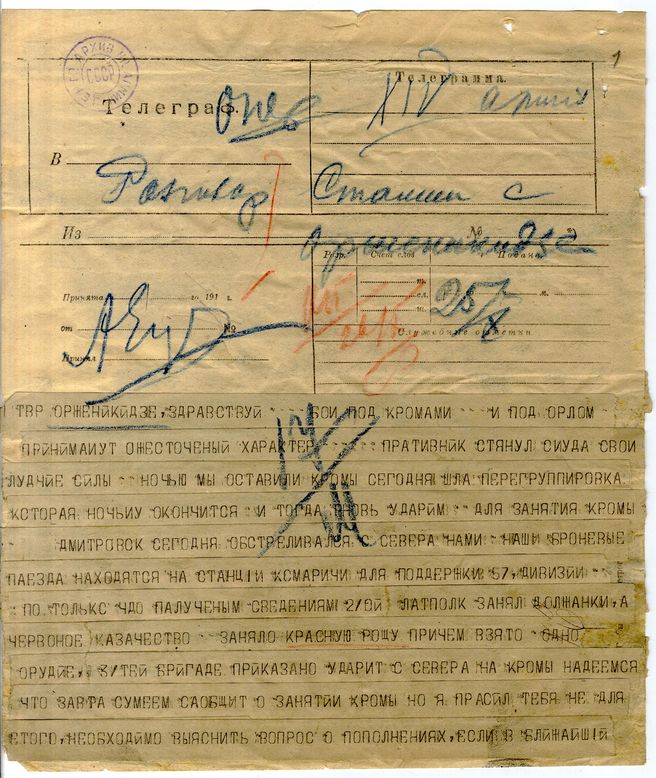 1
АРХИВ
СССР
Телеграф.
Телеграмма.
XIV Армия
В
Разговор Сталина с
Из
№
Орженикидзе
Разр.
Счет слов
Подана.
Принята
го 191 г.
ш.
сл.
м.
25/X
от
№
Служебные отметки
Принял
ТВР ОРЖЕНИКИДЗЕ, ЗДРАВСТВУЙ ---- БОИ ПОД КРОМАМИ --- И ПОД ОРЛОМ -
ПРИНИМАИУТ ОЖЕСТОЧЕНЫЙ ХАРАКТЕР ---- ПРАТИВНИК СТЯНУЛ СИУДА СВОИ
ЛУДЧИЕ СИЛЫ -- НОЧЬЮ МЫ ОСТАВИЛИ КРОМЫ СЕГОДНЯ ШЛА ПЕРЕГРУППИРОВКА
КОТОРАЯ НОЧЬИУ ОКОНЧИТСЯ -- И ТОГДА ВНОВЬ УДАРИМ -- ДЛЯ ЗАНЯТИЯ КРОМЫ
-- ДМИТРОВСК СЕГОДНЯ ОБСТРЕЛИВАЛСЯ С СЕВЕРА НАМИ -- НАШИ БРОНЕВЫЕ
ПАЕЗДА НАХОДЯТСЯ НА СТАНЦIИ КСМАРИЧИ ДЛЯ ПОДДЕРЖКИ 57, ДИВИЗИИ --
: ПО ТОЛЬКС ЧДО ПАЛУЧЕНЫМ СВЕДЕНИЯМ 2/ОЙ ЛАТПОЛК ЗАНЯЛ ДОЛЖАНКИ, А
ЧЕРВОНОЕ КАЗАЧЕСТВО -- ЗАНЯЛО КРАСНУЮ РОЩУ ПРИЧЕМ ВЗЯТО - ОДНО
ОРУДИЕ,, 3/ТЕЙ БРИГАДЕ ПРИКАЗАНО УДАРИТ С СЕВЕРА НА КРОМЫ НАДЕЕМСЯ
ЧТО ЗАВТА СУМЕЕМ САОБЩИТ О ЗАНЯТИИ КРОМЫ НО Я ПРАСИЛ ТЕБЯ НЕ ДЛЯ
ЕТОГО, НЕОБХОДИМО ВЫЯСНИТЬ ВОПРОС О ПОПОЛНЕНИЯХ, ЕСЛИ В БЛИЖАЙШIЙ